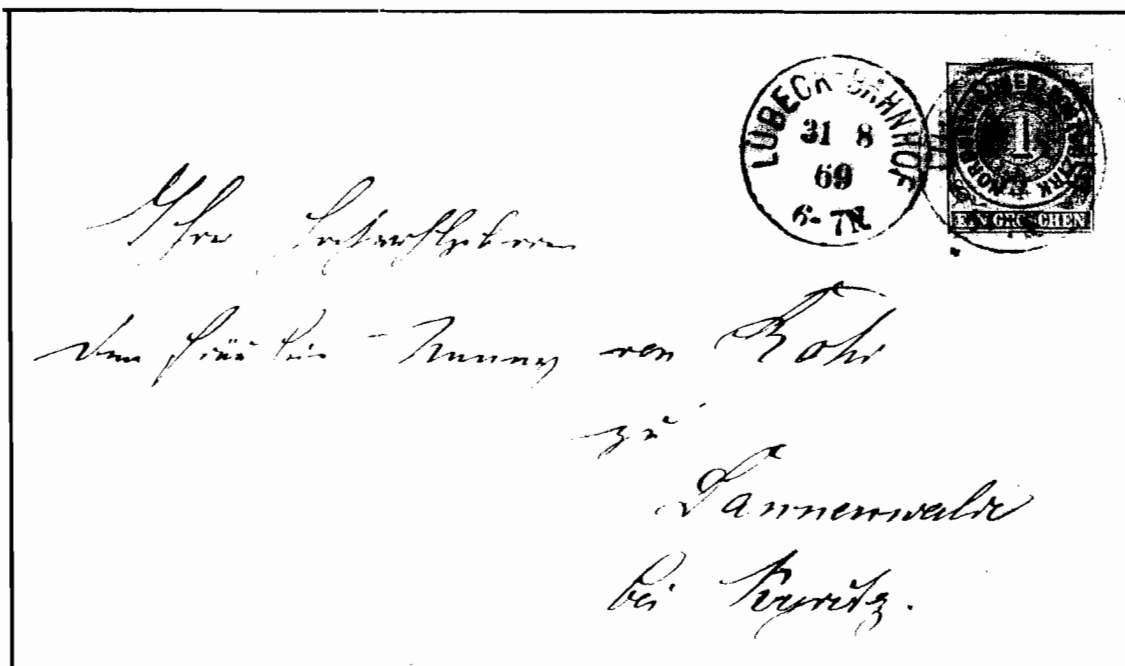 LÜBECK-BAHNHOF
31 8
69
6-7N.
NORDDEUTSCHER POSTBEZIRK
1
EIN GROSCHEN
Ihrer Hochwohlgeboren
dem Fräulein von Rohr
zu
Dannenwalde
bei Kyritz.